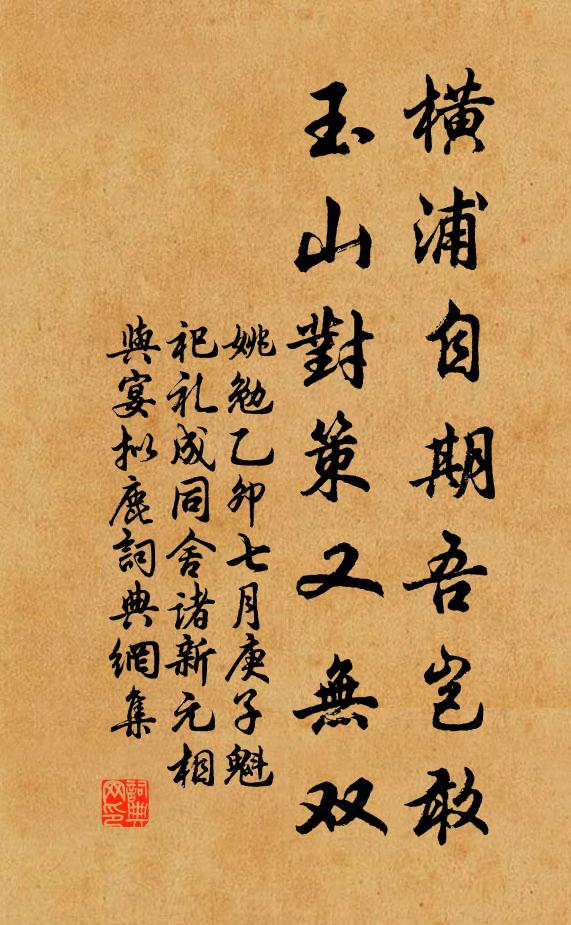 横浦自期吾岂敢
玉山對策又無双
姚勉乙卯七月庚子魁
祀礼成同舍诸新元相
與宴拟鹿詞典網集
詞典
网印